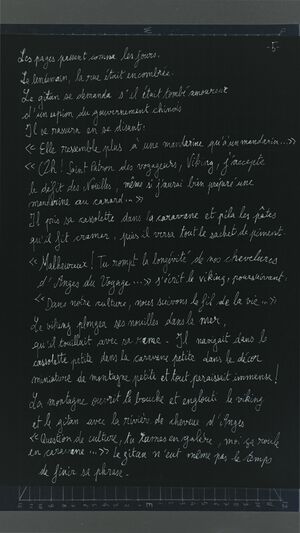 -5-
Les pages passent comme les jours.
Le lendemain, la rue était encombrée.
Le gitan se demanda s'il était tombé amoureux
d'un espion du gouvernement chinois
Il se rassura en se disant:
<< Elle ressemble plus à une mandarine qu'à un mandarin...>>
<< Oh! Saint Patron des voyageurs, Viking, j'accepte
le défit des Nouilles, même si j'aurai bien préparé une
mandarine au canard...>>
Il pris sa cassolette dans la caravane et pila les pâtes
qu'il fit cramer, puis il versa tout le sachet de piment.
<< Malheureux! Tu rompt la longévité de nos chevelures
d'Anges du Voyage...>> s'écrit le viking, poursuivant.
<< Dans notre culture, nous suivons le fil de la vie...>>
Le viking plongea ses nouilles dans la mer,
qu'il touillait avec sa rame. Il navigait dans la
cassolette petite dans la caravane petite dans le décor
miniature de montagne petite et tout paraissait immense!
La montagne ouvrit la bouche et englouti le viking
et le gitan avec la rivière de cheveux d'Anges
<< Question de culture, tu rames en galère, moi ça roule
en caravane...>> Le gitan n'eut même pas le temps
de finir sa phrase.